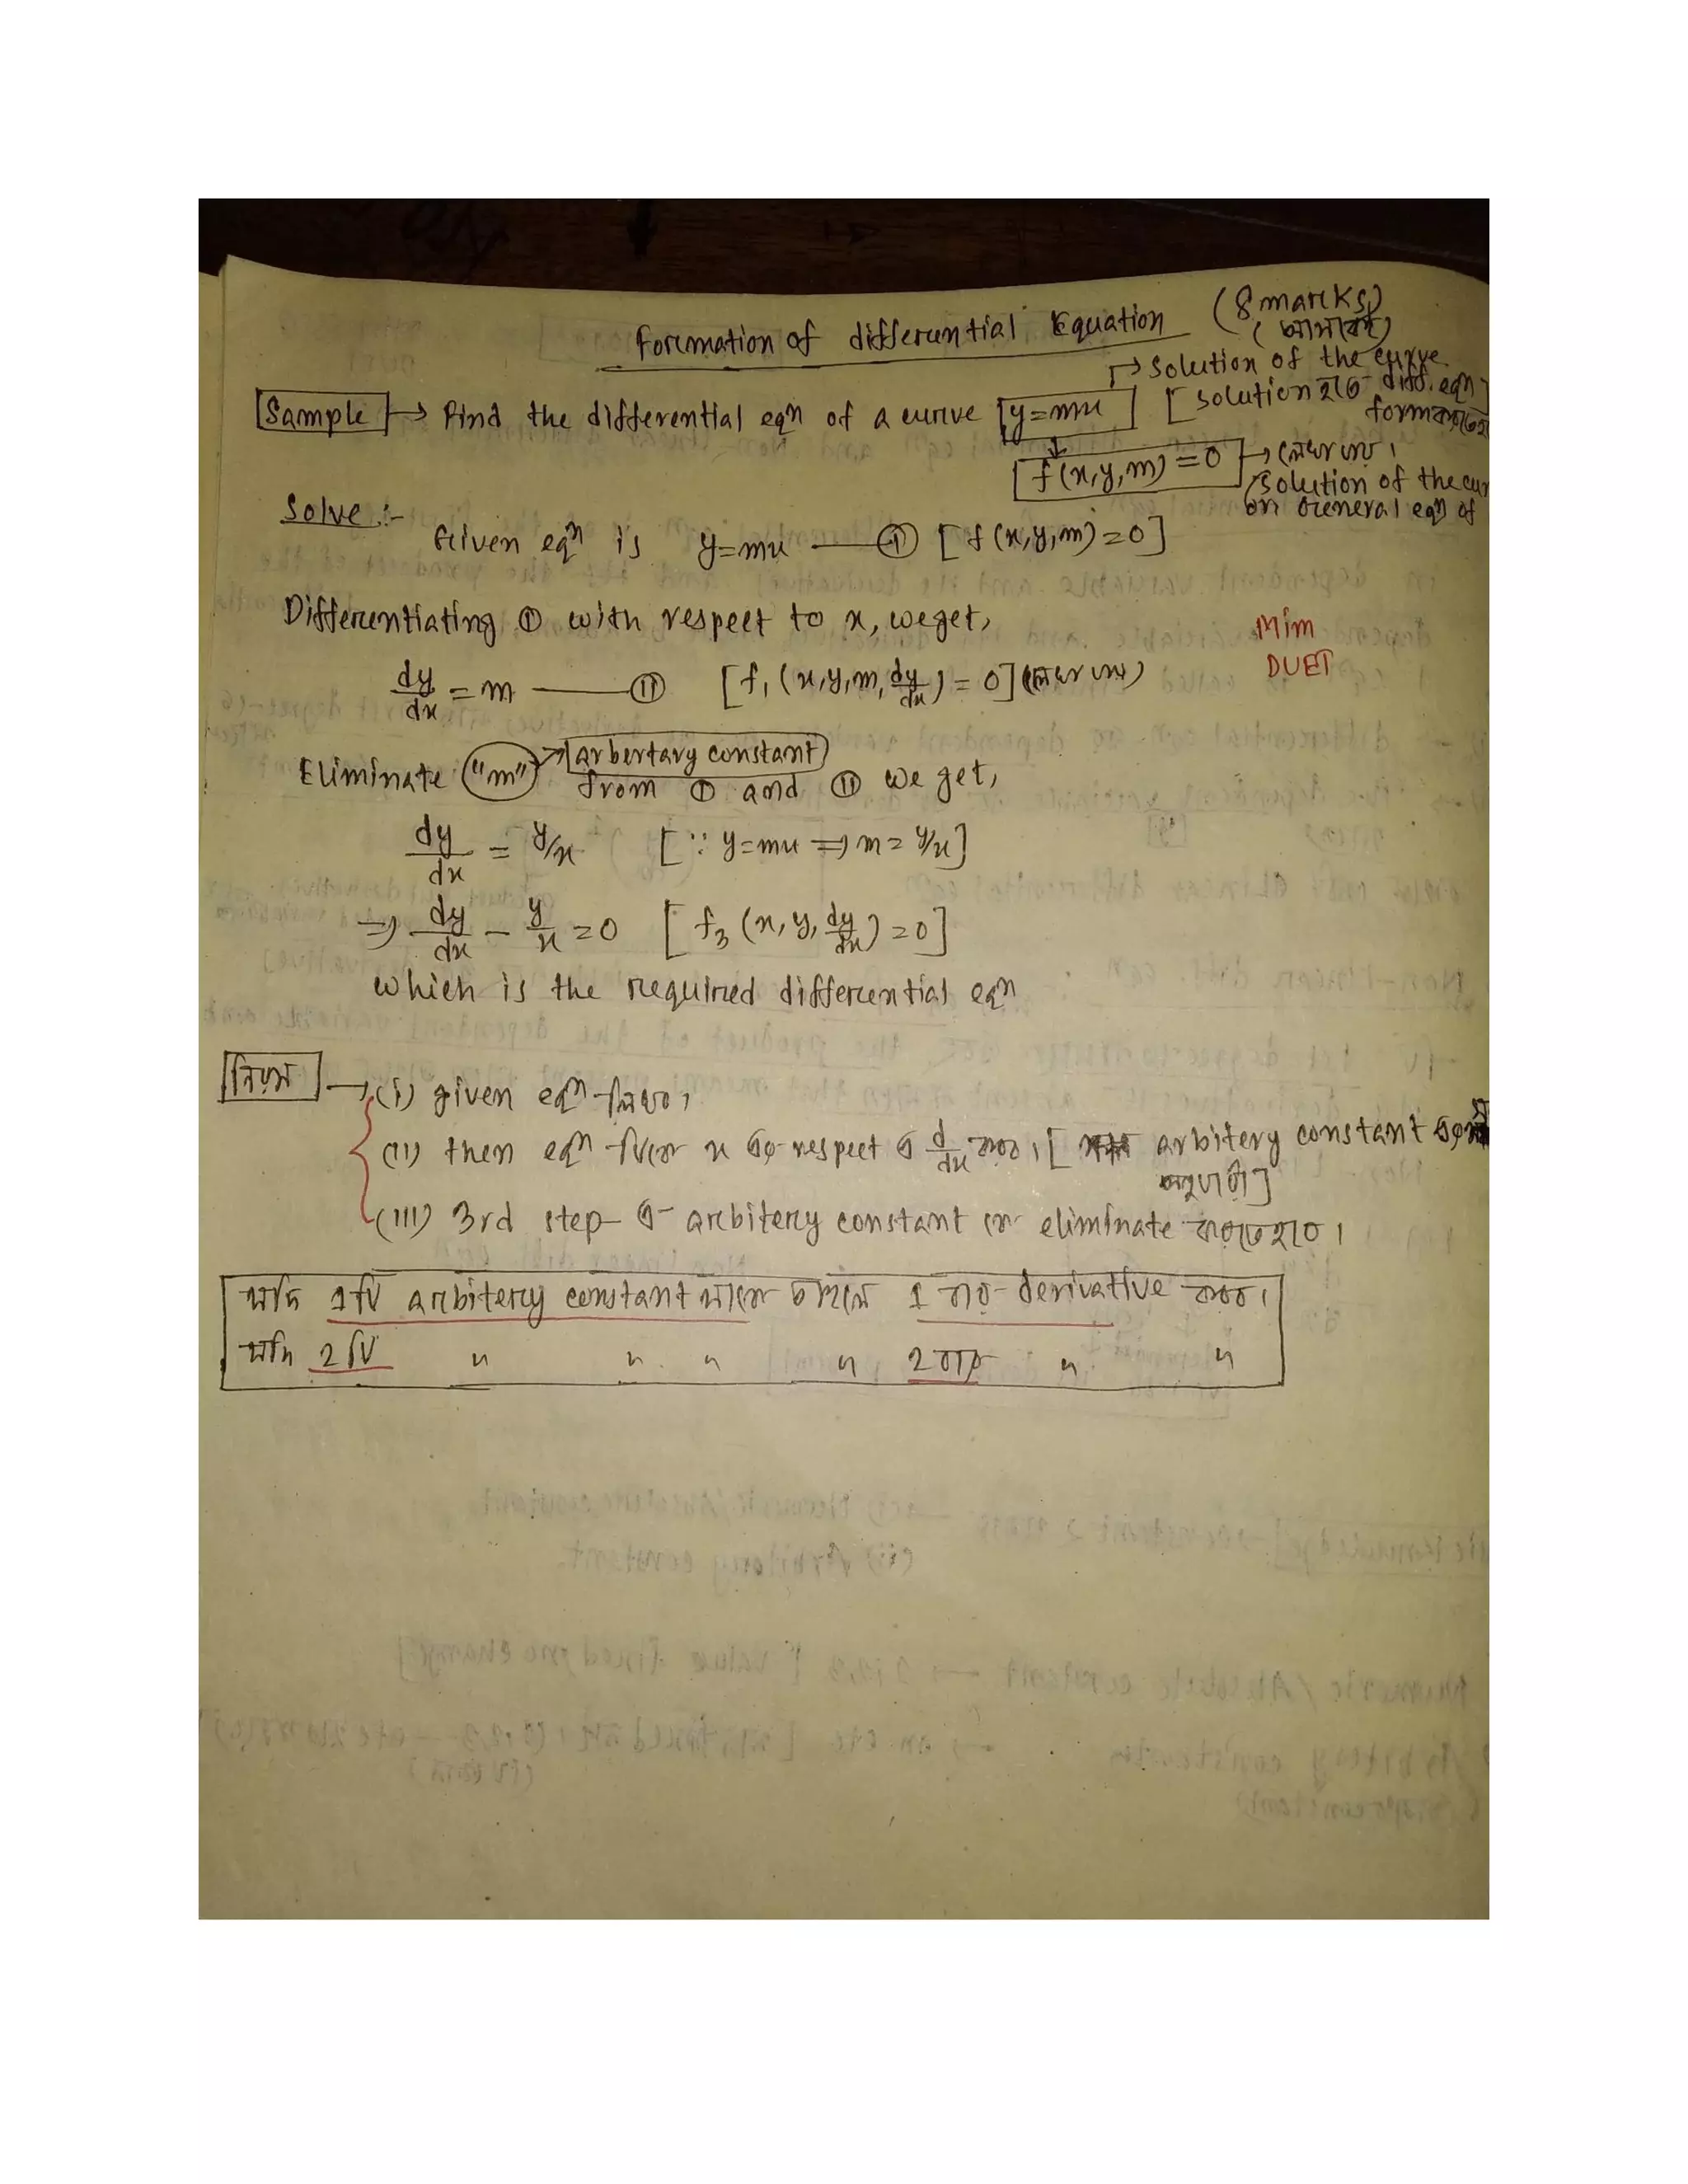 Formation of differential Equation (8 marks)
→ Solution of the curve
Sample → Find the differential eqn of a curve y=mx [solution হতে diff. eqn
form করতে
f(x,y,m)=0 →
Solution of the cur
or General eqn of
Solve :-
Given eqn is y=mx —— (i) [f(x,y,m)=0]
Differentiating (i) with respect to x, we get,
Mim
DUET
dy/dx = m —— (ii) [f₁(x,y,m,dy/dx)=0]
Eliminate "m" → arbertary constant
from (i) and (ii) we get,
dy/dx = y/x [∵ y=mx ⇒ m=y/x]
⇒ dy/dx - y/x = 0 [f₃(x,y,dy/dx)=0]
which is the required differential eqn
নিয়ম → (i) given eqn লিখব।
(ii) then eqn টিকে x এর respect এ d/dx করব। [ arbitery constant এর
অনুযায়ী]
(iii) 3rd step এ arbitery constant কে eliminate করতে হবে।
যদি 1টি arbitery constant থাকে তাহলে 1 বার derivative করব।
যদি 2টি " " " " 2 বার " "